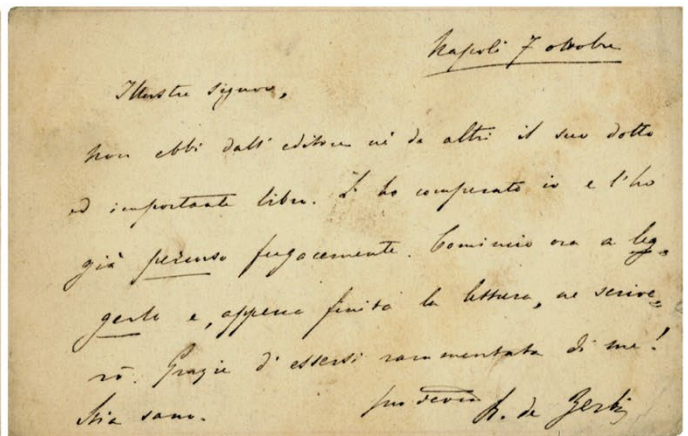 Napoli 7 ottobre
Illustre Signore,
Non ebbi dall' editore nè da altri il suo dotto
ed importante libro. L' ho comperato io e l'ho
già percorso fugacemente. Comincio ora a leg-
gerlo e, appena finita la lettura, ne scrive-
rò. Grazie d' essersi rammentata di me!
Stia sano.
suo devmo R. de Zerbi